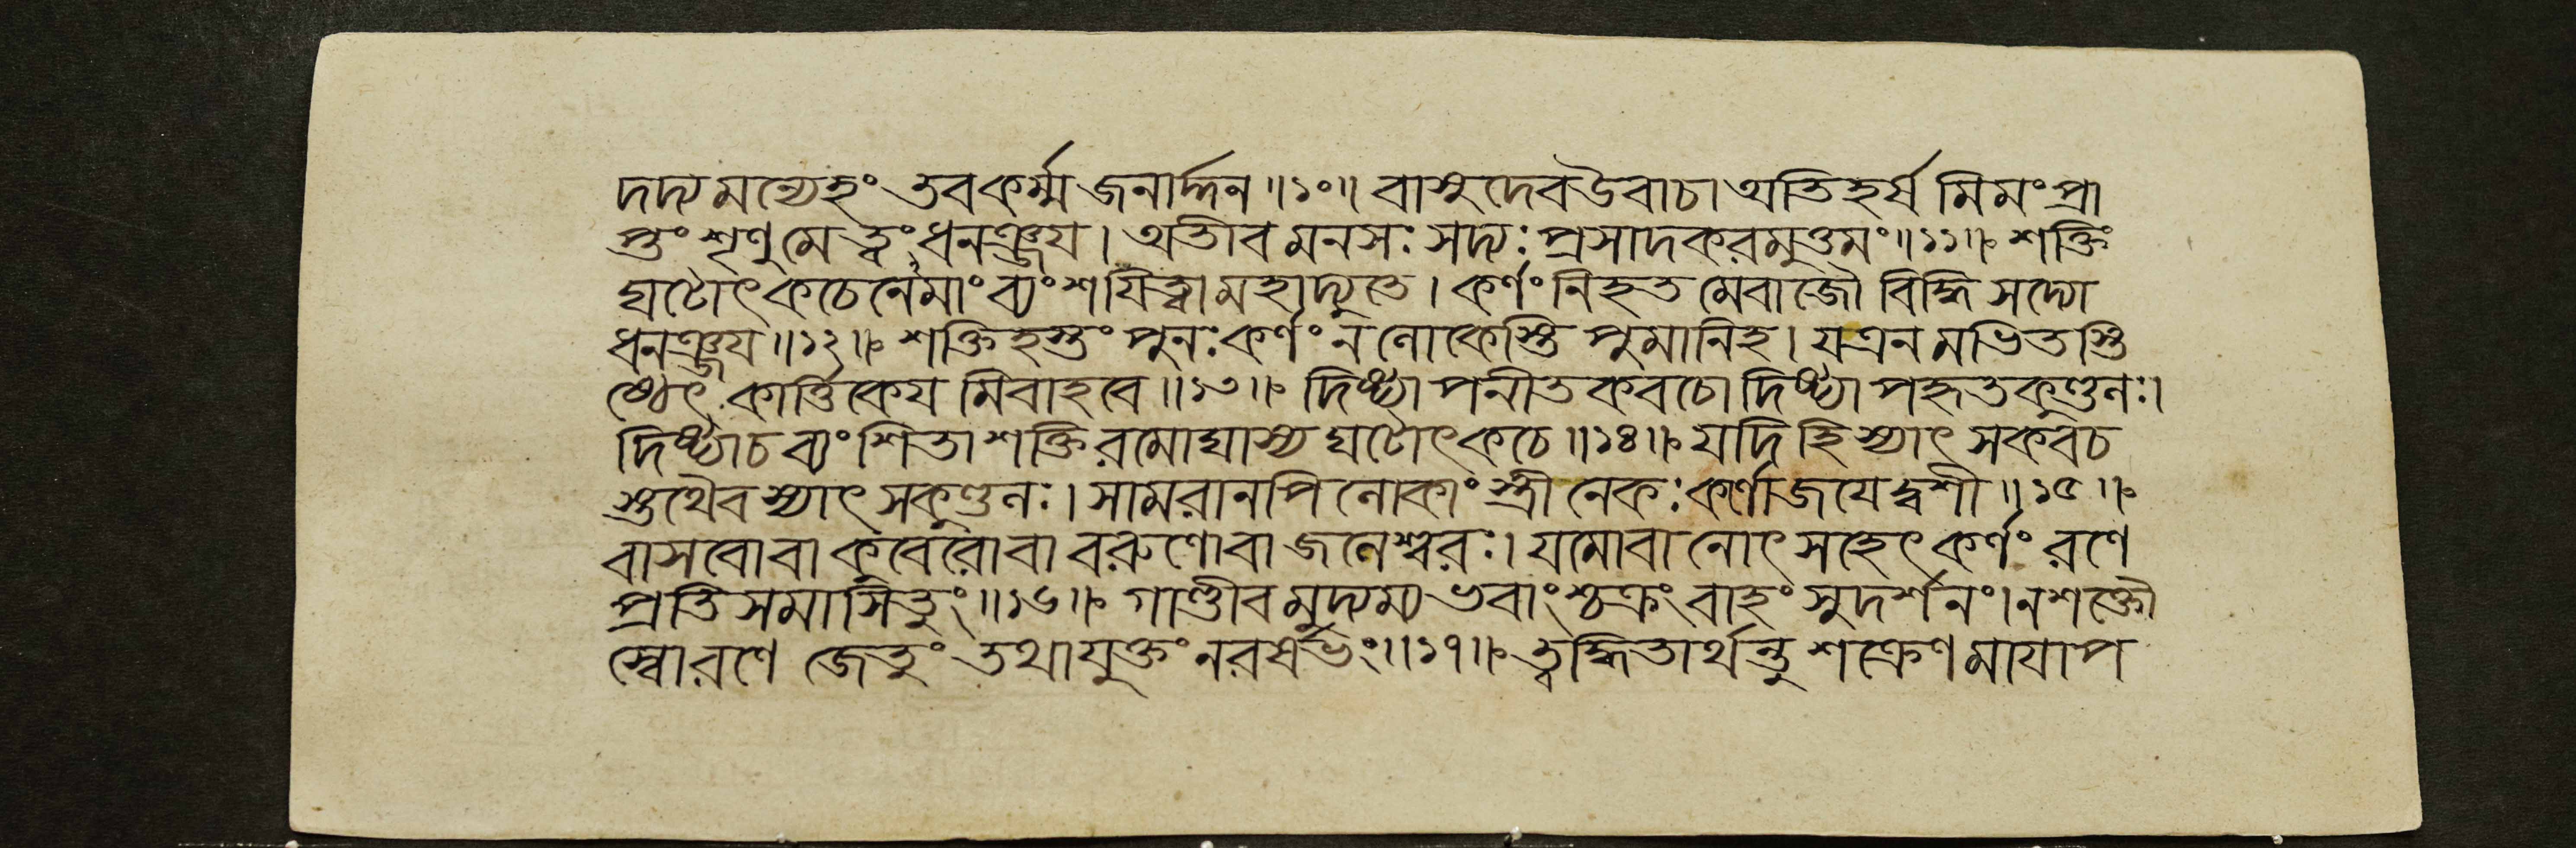 দদ্য মন্যেহং তব কর্ম্ম জনার্দ্দন ॥১০॥ বাসুদেব উবাচ। অতিহর্ষ মিমং প্রা
প্তং শৃণু মে ত্বং ধনঞ্জয । অতীব মনসঃ সদ্যঃ প্রসাদকরমুত্তমং ॥১১॥ শক্তিং
ঘটোৎকচেনেমাং ব্যংশযিত্বা মহাদ্যুতে । কর্ণং নিহত মেবাজৌ বিদ্ধি সদ্যো
ধনঞ্জয ॥১২॥ শক্তিহস্তং পুনঃ কর্ণং ন লোকেস্তি পুমানিহ । য এন মভিতস্তি
ষ্ঠেৎ কার্ত্তিকেয মিবাহবে ॥১৩॥ দিষ্ট্যাপনীতকবচো দিষ্ট্যাপহৃতকুণ্ডলঃ ।
দিষ্ট্যা চ ব্যংশিতা শক্তিরমোঘাস্য ঘটোৎকচে ॥১৪॥ যদি হি স্যাৎ সকবচ
স্তথৈব স্যাৎ সকুণ্ডলঃ । সামরানপি লোকাংস্ত্রী নেকঃ কর্ণো জযেদ্বশী ॥১৫॥
বাসবো বা কুবেরো বা বরুণো বা জলেশ্বরঃ । যমো বা নোৎসহেৎ কর্ণং রণে
প্রতিসমাসিতুং ॥১৬॥ গাণ্ডীবমুদ্যম্য ভবাংশ্চক্রং বাহং সুদর্শনং । ন শক্তৌ
স্বো রণে জেতুং তথাযুক্তং নরর্ষভং ॥১৭॥ ত্বদ্ধিতার্থন্তু শক্রেণ মাযাপ